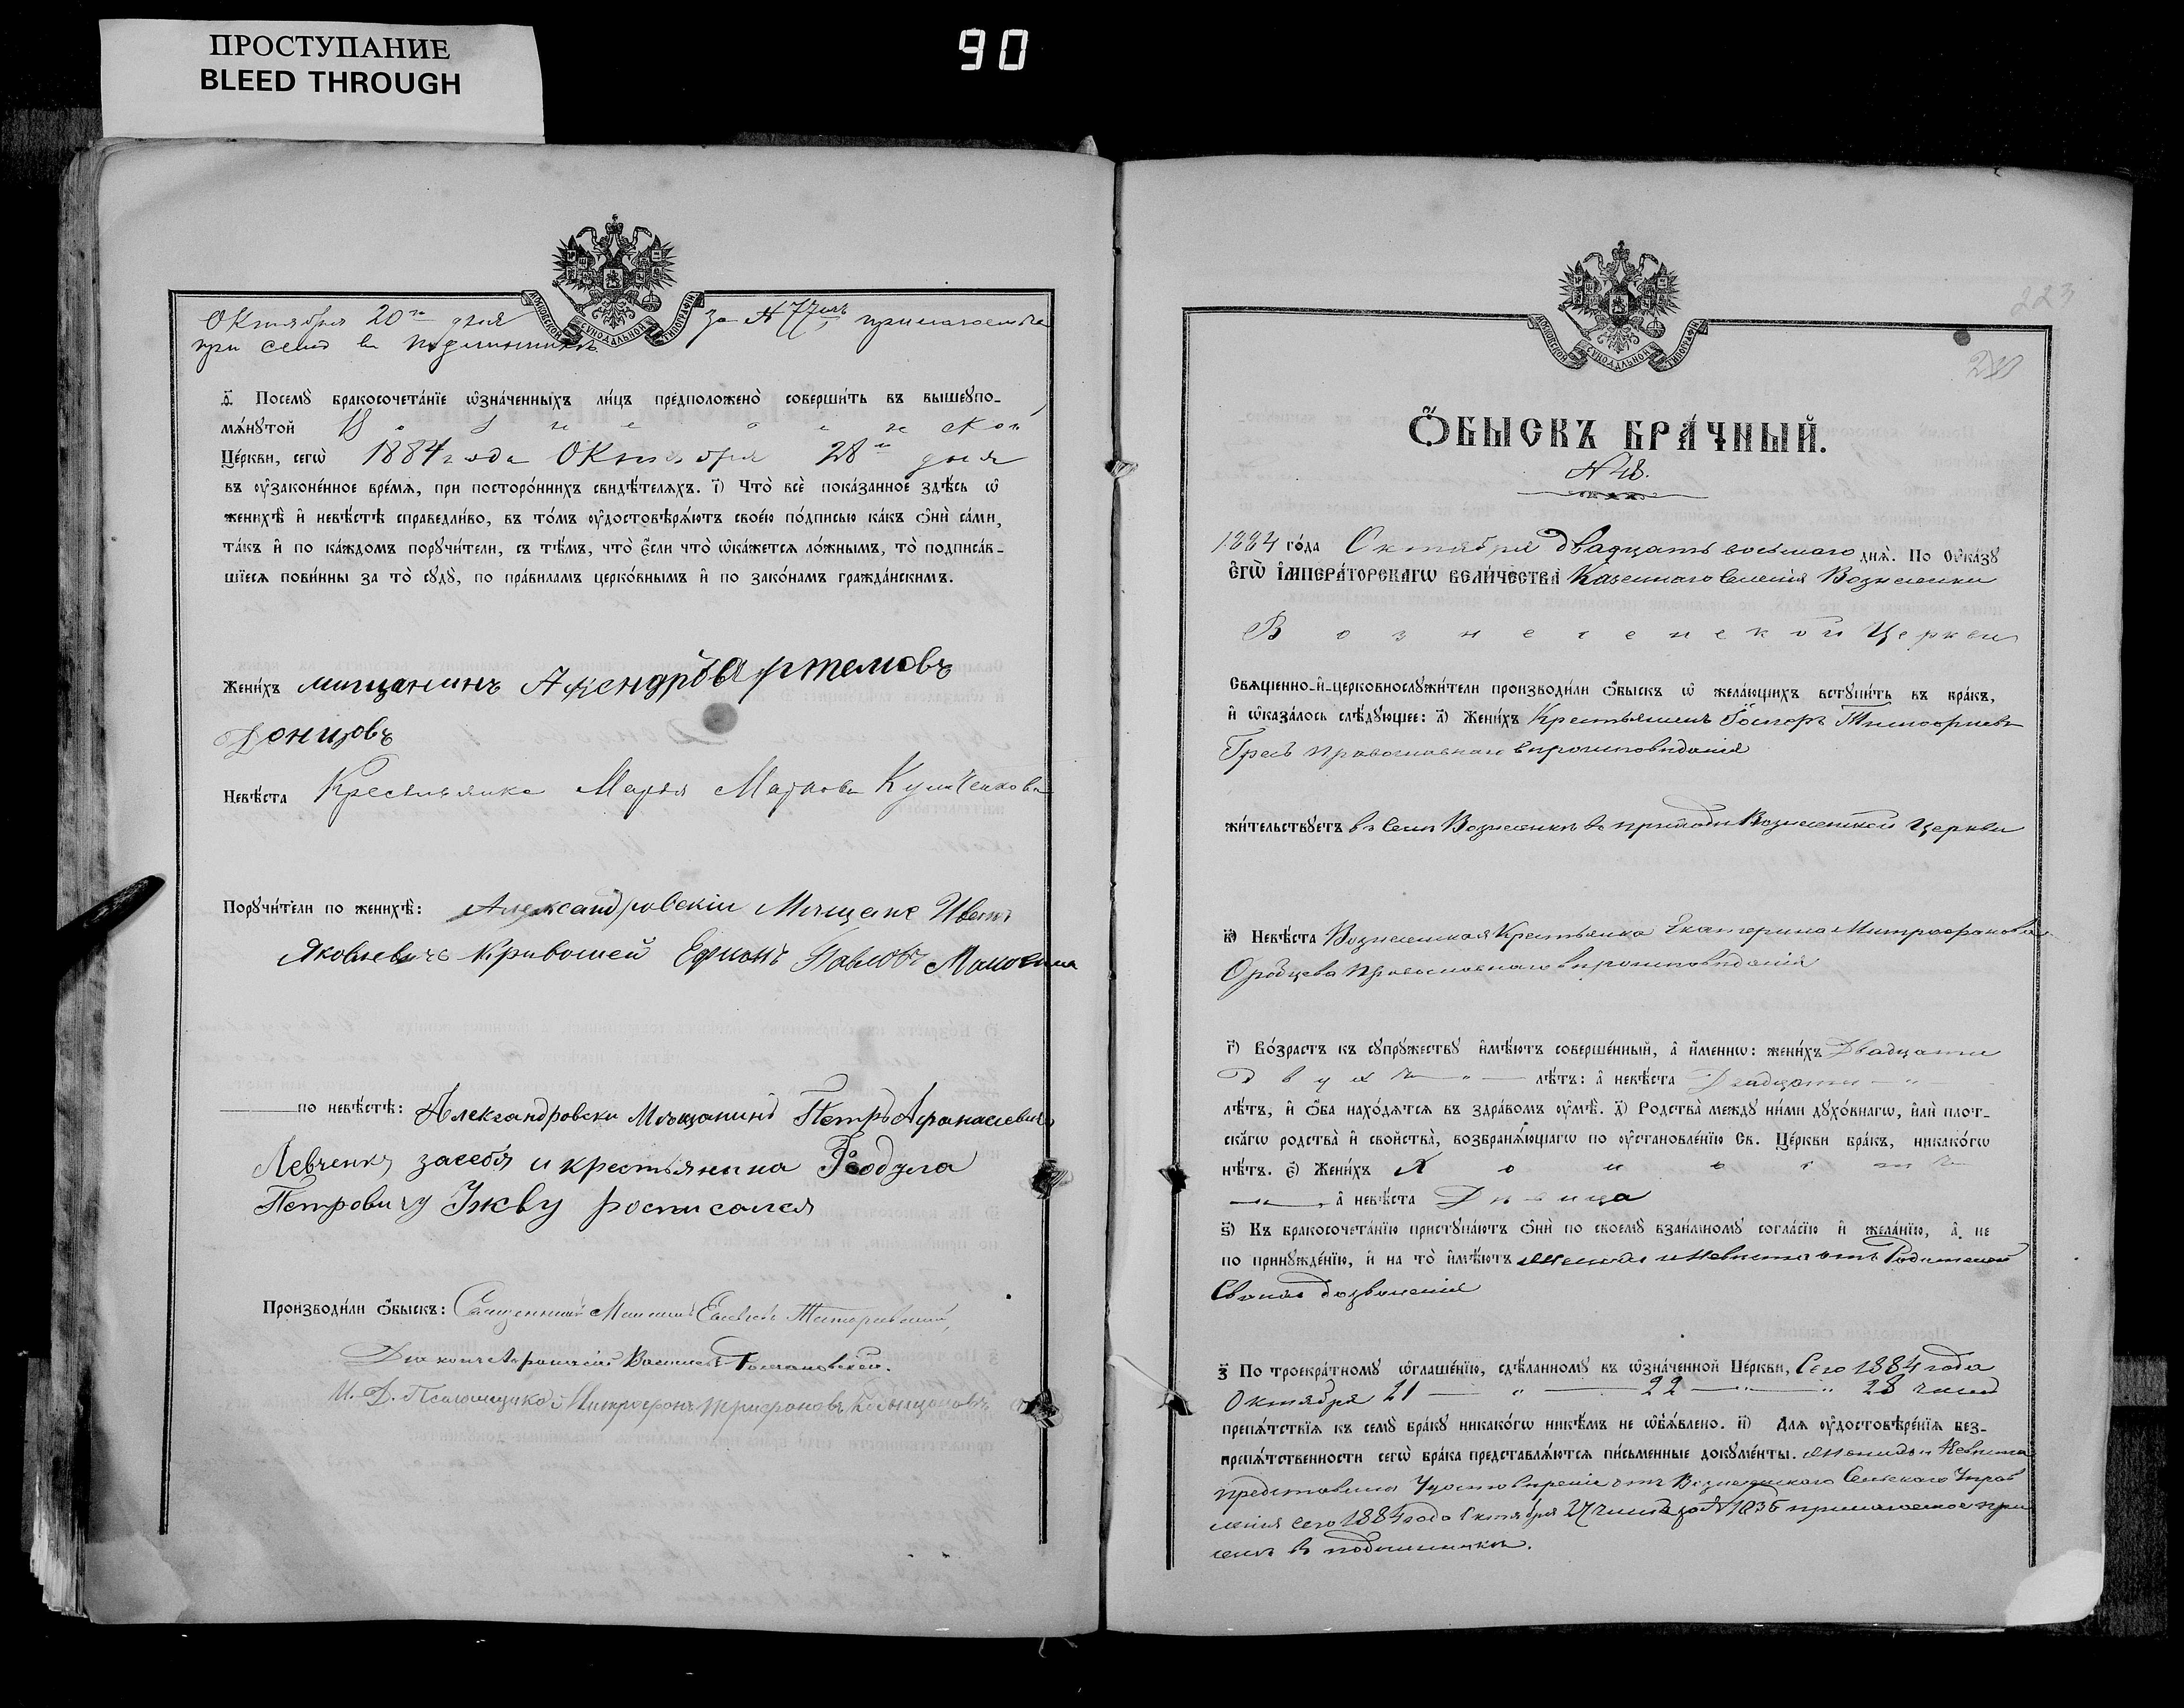 ПРОСТУПАНИЕ
BLEED THROUGH
90
Октября 20го дня за № 77мъ прилагаемъ
при семъ въ подлинникѣ.
МОСКОВСКОЙ СѴНОДАЛЬНОЙ ТИПОГРАФІИ
д҃i. Посемꙋ̀ бракосочета́нїе ѡ҆зна́ченныхъ ли́цъ предположено̀ соверши́ть въ вышеꙋпо-
мѧ́нꙋтой Вознесенской
Це́ркви, сегѡ̀ 1884 года Октября 28го дня
въ ᲂу҆законе́нное вре́мѧ, при посторо́ннихъ свидѣ́телѧхъ. і҃) Что̀ всѐ пока́занное здѣ́сь ѡ҆
женихѣ̀ и҆ невѣ́стѣ справедли́во, въ то́мъ ᲂу҆достовѣрѧ́ютъ свое́ю по́дписью ка́къ ѻ҆нѝ са́ми,
та́къ и҆ по ка́ждомъ порꙋчи́тели, съ тѣ́мъ, что̀ є҆́сли что̀ ѡ҆ка́жетсѧ ло́жнымъ, то̀ подписа́в-
шїесѧ пови́нны за то̀ сꙋдꙋ̀, по пра́виламъ церко́внымъ и҆ по зако́намъ гражда́нскимъ.
Жени́хъ мищанинъ Артемовъ
Донцовъ
Невѣ́ста Крестьянка Марья Маркова
Порꙋчи́тели по женихѣ̀: Александровскіи Мѣщане Иванъ
Яковлевичъ Кривошей Ефимъ Павловъ
по невѣ́стѣ: Александровски Мѣщанинъ Петръ Афанасіевичъ
Левченку засебя и крестьянина Феодула
Петровичу росписался
Производи́ли ѻ҆́быскъ: Священникъ
Діаконъ Василій
И. Д. Псаломщика Митрофанъ Трифоновъ
223
ѺБЫСКЪ БРА́ЧНЫЙ.
№ 48.
МОСКОВСКОЙ СѴНОДАЛЬНОЙ ТИПОГРАФІИ
1884 го́да Октября двадцать восьмаго днѧ̀. По Оу҆ка́зꙋ
Є҆ГѠ̀ И҆МПЕРА́ТОРСКАГѠ ВЕЛИ́ЧЕСТВА Казеннаго Селенія Вознесенки
Вознесенской Церкви
Свѧще́нно-и҆-церковнослꙋжи́тели производи́ли ѻ҆́быскъ ѡ҆ жела́ющихъ встꙋпи́ть въ бра́къ,
и҆ ѡ҆каза́лось слѣ́дꙋющее: а҃) Жени́хъ Крестьянинъ
православнаго вѣроисповѣданія
жи́тельствꙋетъ въ селѣ Вознесенкѣ въ приходѣ Вознесенской Церкви
в҃) Невѣ́ста Вознесенская Крестьянка Екатерина Митрофановна
православнаго вѣроисповѣданія
г҃) Во́зрастъ къ сꙋпрꙋ́жествꙋ и҆мѣ́ютъ соверше́нный, а҆ и҆́меннѡ: жени́хъ Двадцати
двухъ лѣ́тъ: а҆ невѣ́ста Двадцати
лѣ́тъ, и҆ ѻ҆́ба нахо́дѧтсѧ въ здра́вомъ ᲂу҆мѣ̀. д҃) Родства̀ междꙋ ни́ми дꙋхо́внагѡ, и҆лѝ плот-
ска́гѡ родства̀ и҆ свойства̀, возбранѧ́ющагѡ по ᲂу҆становле́нїю Св. Це́ркви бра́къ, никако́гѡ
нѣ́тъ. є҃) Жени́хъ Холостъ
, а҆ невѣ́ста Дѣвица
ѕ҃) Къ бракосочета́нїю пристꙋпа́ютъ ѻ҆нѝ по своемꙋ̀ взаи́мномꙋ согла́сїю и҆ жела́нїю, а҆ не
по принꙋжде́нїю, и҆ на то̀ и҆мѣ́ютъ женихъ и невѣста отъ Родителей
своихъ дозволенія
з҃ По троекра́тномꙋ ѡ҆глаше́нїю, сдѣ́ланномꙋ въ ѡ҆зна́ченной Це́ркви, Сего 1884 года
Октября 21 — „ — 22 — „ — 28 чиселъ
препѧ́тствїѧ къ семꙋ̀ бра́кꙋ никако́гѡ никѣ́мъ не ѡ҆б̾ѧ́влено. и҃) Длѧ ᲂу҆достовѣре́нїѧ без-
препѧ́тственности сегѡ̀ бра́ка представлѧ́ютсѧ пи́сьменные докꙋме́нты. женихъ и невѣста
представили Удостовѣреніе отъ Вознесенскаго Сельскаго Управ
ленія сего 1884 года Октября 27 числа за № 1836 прилагаемое при
семъ въ подлинникѣ.